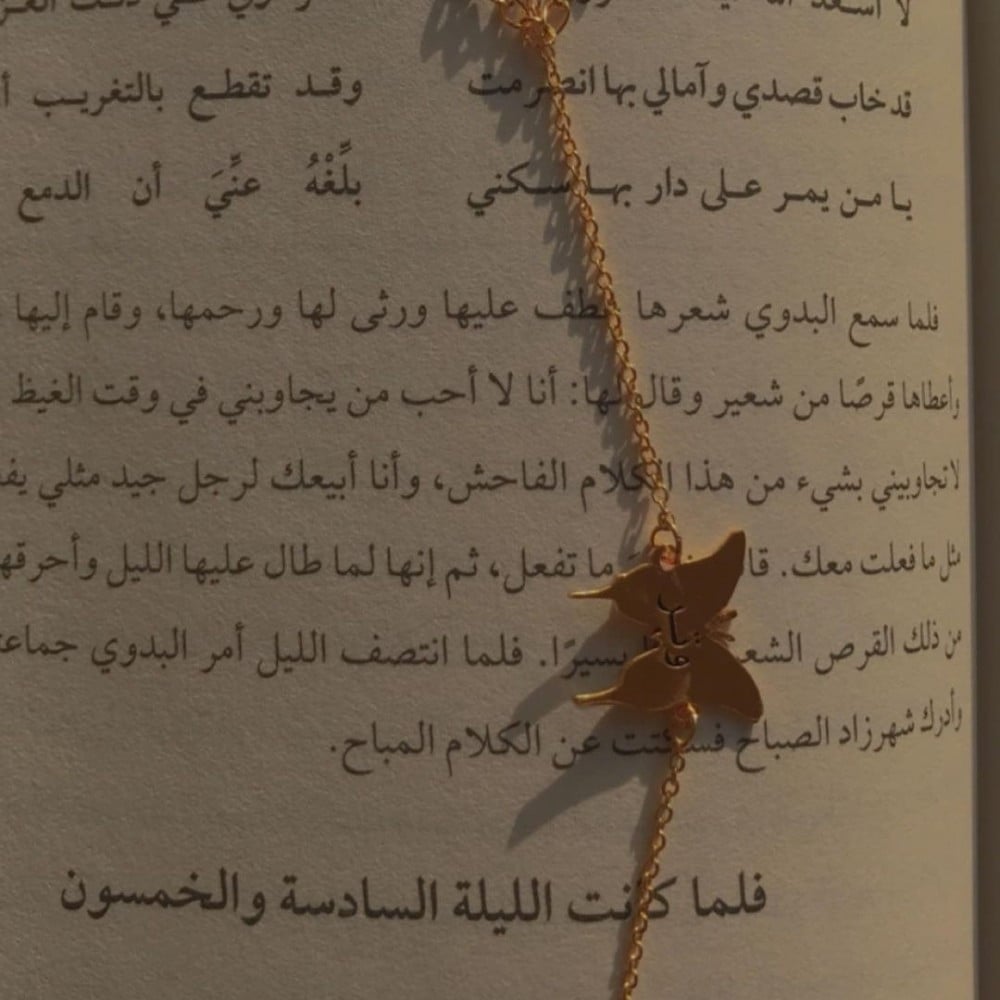 قد خاب قصدي وآمالي بها انصرمت وقد تقطع بالتغريب
يا من يمر على دار بها سكني بلِّغْهُ عنِّيَ أن الدمع
فلما سمع البدوي شعرها عطف عليها ورثى لها ورحمها، وقام إليها
وأعطاها قرصًا من شعير وقال لها: أنا لا أحب من يجاوبني في وقت الغيظ
لا تجاوبيني بشيء من هذا الكلام الفاحش، وأنا أبيعك لرجل جيد مثلي
مثل ما فعلت معك. ما تفعل، ثم إنها لما طال عليها الليل وأحرقها
من ذلك القرص يسيرًا. فلما انتصف الليل أمر البدوي
وأدرك شهرزاد الصباح فسكتت عن الكلام المباح.
فلما كانت الليلة السادسة والخمسون